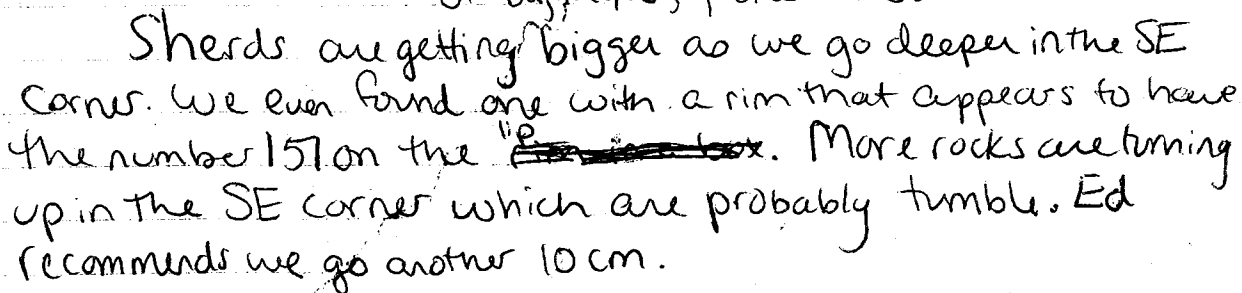 Sherds are getting bigger as we go deeper in the SE
corner. We even found one with a rim that appears to have
the number 157 on the . More rocks are turning
up in the SE corner which are probably tumble. Ed
recommends we go another 10 cm.